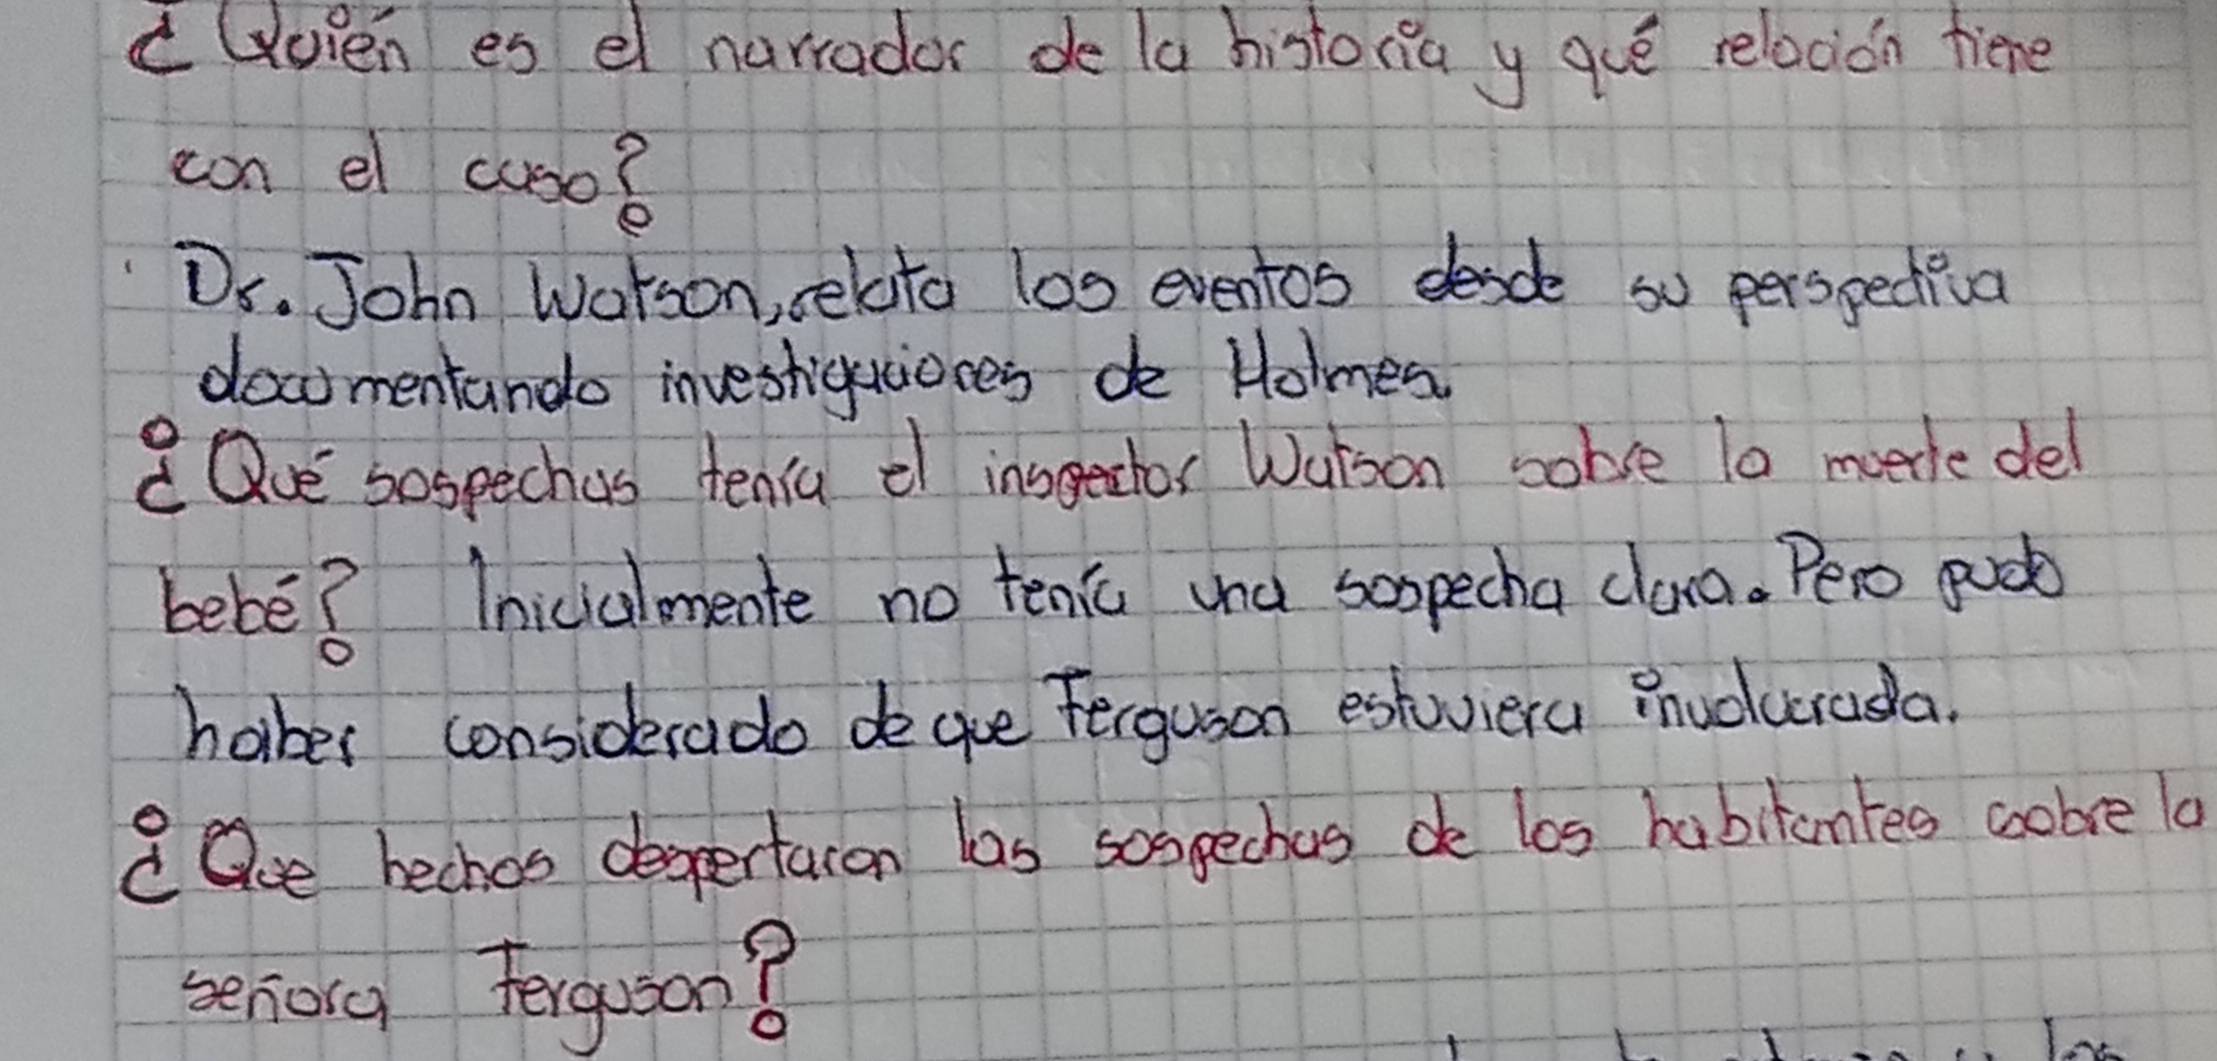 ¿Quién es el narrador de la historia y qué relación tiene
con el caso?
Dr. John Watson, relata los eventos desde su perspectiva
documentando investigaciones de Holmes.
¿Qué sospechas tenía el inspector Watson sobre la muerte del
bebé? Inicialmente no tenía una sospecha clara. Pero pudo
haber considerado de que Ferguson estuviera involucrada.
¿Que hechos despertaron las sospechas de los habitantes sobre la
señora Ferguson?